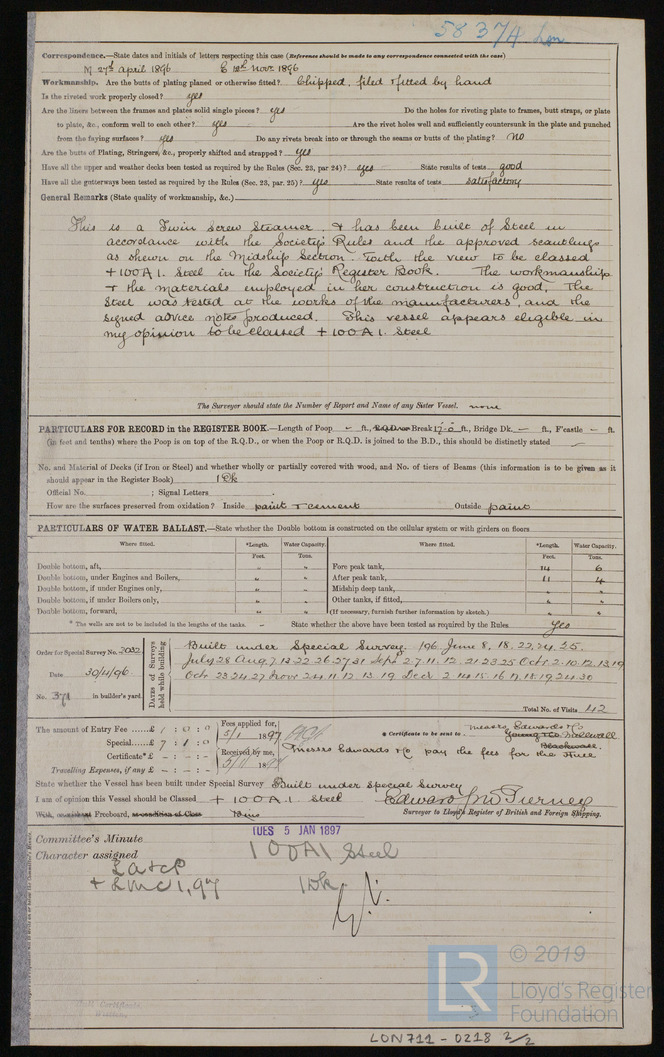 58374 Lon
Correspondence.—State dates and initials of letters respecting this case (Reference should be made to any correspondence connected with the case)
M 27th April 1896 E 12th Novr 1896
Workmanship. Are the butts of plating planed or otherwise fitted? Chipped, filed & fitted by hand
Is the riveted work properly closed? yes
Are the liners between the frames and plates solid single pieces? yes Do the holes for riveting plate to frames, butt straps, or plate
to plate, &c., conform well to each other? yes Are the rivet holes well and sufficiently countersunk in the plate and punched
from the faying surfaces? yes Do any rivets break into or through the seams or butts of the plating? no
Are the butts of Plating, Stringers, &c., properly shifted and strapped? yes
Have all the upper and weather decks been tested as required by the Rules (Sec. 23, par 24)? yes State results of tests good
Have all the gutterways been tested as required by the Rules (Sec. 23, par. 25)? yes State results of tests satisfactory
General Remarks (State quality of workmanship, &c.)
This is a Twin Screw Steamer & has been built of Steel in
accordance with the Society's Rules and the approved scantlings
as shewn on the Midship Section. With the view to be classed
+100A1. Steel in the Society's Register Book. The workmanship
+ the materials employed in her construction is good. The
Steel was tested at the works of the manufacturers, and the
signed advice notes produced. This vessel appears eligible in
my opinion to be classed +100A1. Steel
The Surveyor should state the Number of Report and Name of any Sister Vessel. none
PARTICULARS FOR RECORD in the REGISTER BOOK.—Length of Poop – ft., R.Q.D. or Break 17.0 ft., Bridge Dk. – ft., F'castle – ft.
(in feet and tenths) where the Poop is on top of the R.Q.D., or when the Poop or R.Q.D. is joined to the B.D., this should be distinctly stated –
No. and Material of Decks (if Iron or Steel) and whether wholly or partially covered with wood, and No. of tiers of Beams (this information is to be given as it
should appear in the Register Book) 1 Dk
Official No. ; Signal Letters .
How are the surfaces preserved from oxidation? Inside paint & cement Outside paint
PARTICULARS OF WATER BALLAST.—State whether the Double bottom is constructed on the cellular system or with girders on floors
Where fitted. *Length. Water Capacity. Where fitted. *Length. Water Capacity.
Feet. Tons. Feet. Tons.
Double bottom, aft, " " Fore peak tank, 14 6
Double bottom, under Engines and Boilers, " " After peak tank, 11 4
Double bottom, if under Engines only, " " Midship deep tank, " "
Double bottom, if under Boilers only, " " Other tanks, if fitted, " "
Double bottom, forward, " " (If necessary, furnish further information by sketch.) " "
* The wells are not to be included in the lengths of the tanks. – State whether the above have been tested as required by the Rules Yes
Order for Special Survey No. 2032
Date 30/4/96
No. 371 in builder's yard.
Dates of Surveys held while building
Built under Special Survey. 1896 June 8, 18. 22. 24. 25.
July 28 Aug 7. 13. 22. 26. 27. 31 Sept 2. 7. 11. 12. 21 23 25 Oct. 2. 10. 12. 13. 19
Oct 23 24 27 Nov 2 4 11. 12. 13. 19 Dec 2 14 15. 16 17. 18. 19 24. 30
Total No. of Visits 42
The amount of Entry Fee ......£ 1 : 0 : 0
Special......£ 7 : 1 : 0
Certificate* £ – : – : –
Travelling Expenses, if any £ – : – : –
Fees applied for, 5/1 1897
Received by me, 5/1 1897
* Certificate to be sent to Messrs Edwards & Co
Millwall
Blackwall
Messrs Edwards & Co pay the fees for the Hull
State whether the Vessel has been built under Special Survey Built under Special Survey
I am of opinion this Vessel should be Classed +100A.1. Steel
With, or without Freeboard, as condition of Class
Edward J McTierney
Surveyor to Lloyd's Register of British and Foreign Shipping.
TUES 5 JAN 1897
Committee's Minute
Character assigned 100A1 Steel
LA&CP
+ LMC 1,97 1Dk
© 2019
LR
Lloyd's Register
Foundation
LON711-0218 2/2